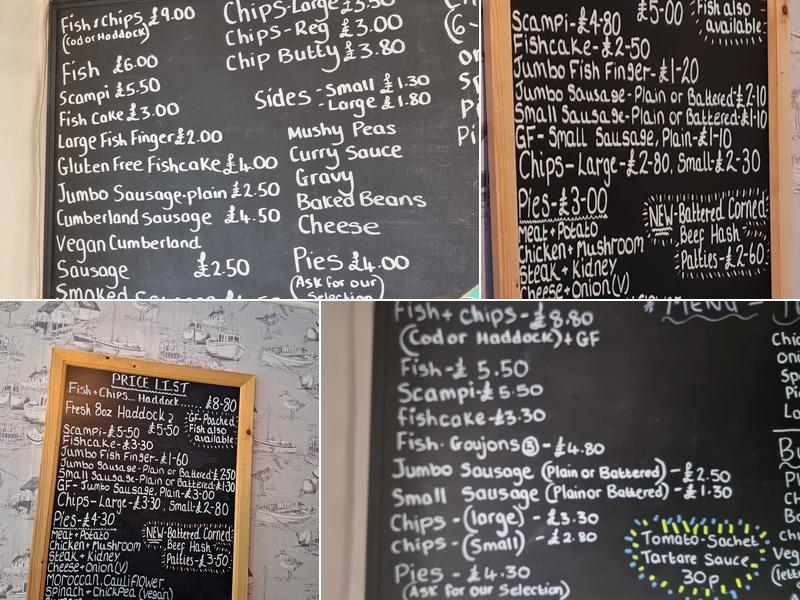 Fish + Chips £9.00
(Cod or Haddock)
Fish £6.00
Scampi £5.50
Fish Cake £3.00
Large Fish Finger £2.00
Gluten Free Fishcake £4.00
Jumbo Sausage-plain £2.50
Cumberland Sausage £4.50
Vegan Cumberland
Sausage £2.50
Smoked
Chips-Large £3.50
Chips-Reg £3.00
Chip Butty £3.80
Sides - Small £1.30
- Large £1.80
Mushy Peas
Curry Sauce
Gravy
Baked Beans
Cheese
Pies £4.00
(Ask for our
Selection)
£5-00
Fish also
available
Scampi-£4-80
Fishcake-£2-50
Jumbo Fish Finger-£1-20
Jumbo Sausage-Plain or Battered-£2-10
Small Sausage-Plain or Battered-£1-10
GF- Small Sausage, Plain-£1-10
Chips-Large-£2-80, Small-£2-30
Pies-£3-00
Meat+Potato
Chicken+Mushroom
Steak+Kidney
Cheese+Onion(V)
NEW-Battered Corned
Beef Hash
Patties-£2-60
PRICE LIST
Fish+Chips... Haddock........ £8-80
Fresh 8oz Haddock
£5-50
GF-Poached
Fish also
available
Scampi-£5-50
Fishcake-£3-30
Jumbo Fish Finger-£1-60
Jumbo Sausage-Plain or Battered-£2-50
Small Sausage-Plain or Battered-£1-30
GF- Jumbo Sausage, Plain-£3-00
Chips-Large-£3-30, Small-£2-80
Pies-£4-30
Meat+Potato
Chicken+Mushroom
Steak+Kidney
Cheese+Onion(V)
Moroccan, Cauliflower,
Spinach+Chickpea (vegan)
NEW-Battered Corned
Beef Hash
Patties-£3-50
* MENU -
Fish+Chips-£8.80
(Cod or Haddock)+GF
Fish-£5.50
Scampi-£5.50
fishcake-£3.30
Fish Goujons (5)-£4.80
Jumbo Sausage (Plain or Battered)-£2.50
Small Sausage (Plain or Battered)-£1.30
Chips-(large)-£3.30
Chips-(Small)-£2.80
Pies-£4.30
(Ask for our Selection)
Tomato-Sachet
Tartare Sauce
30p